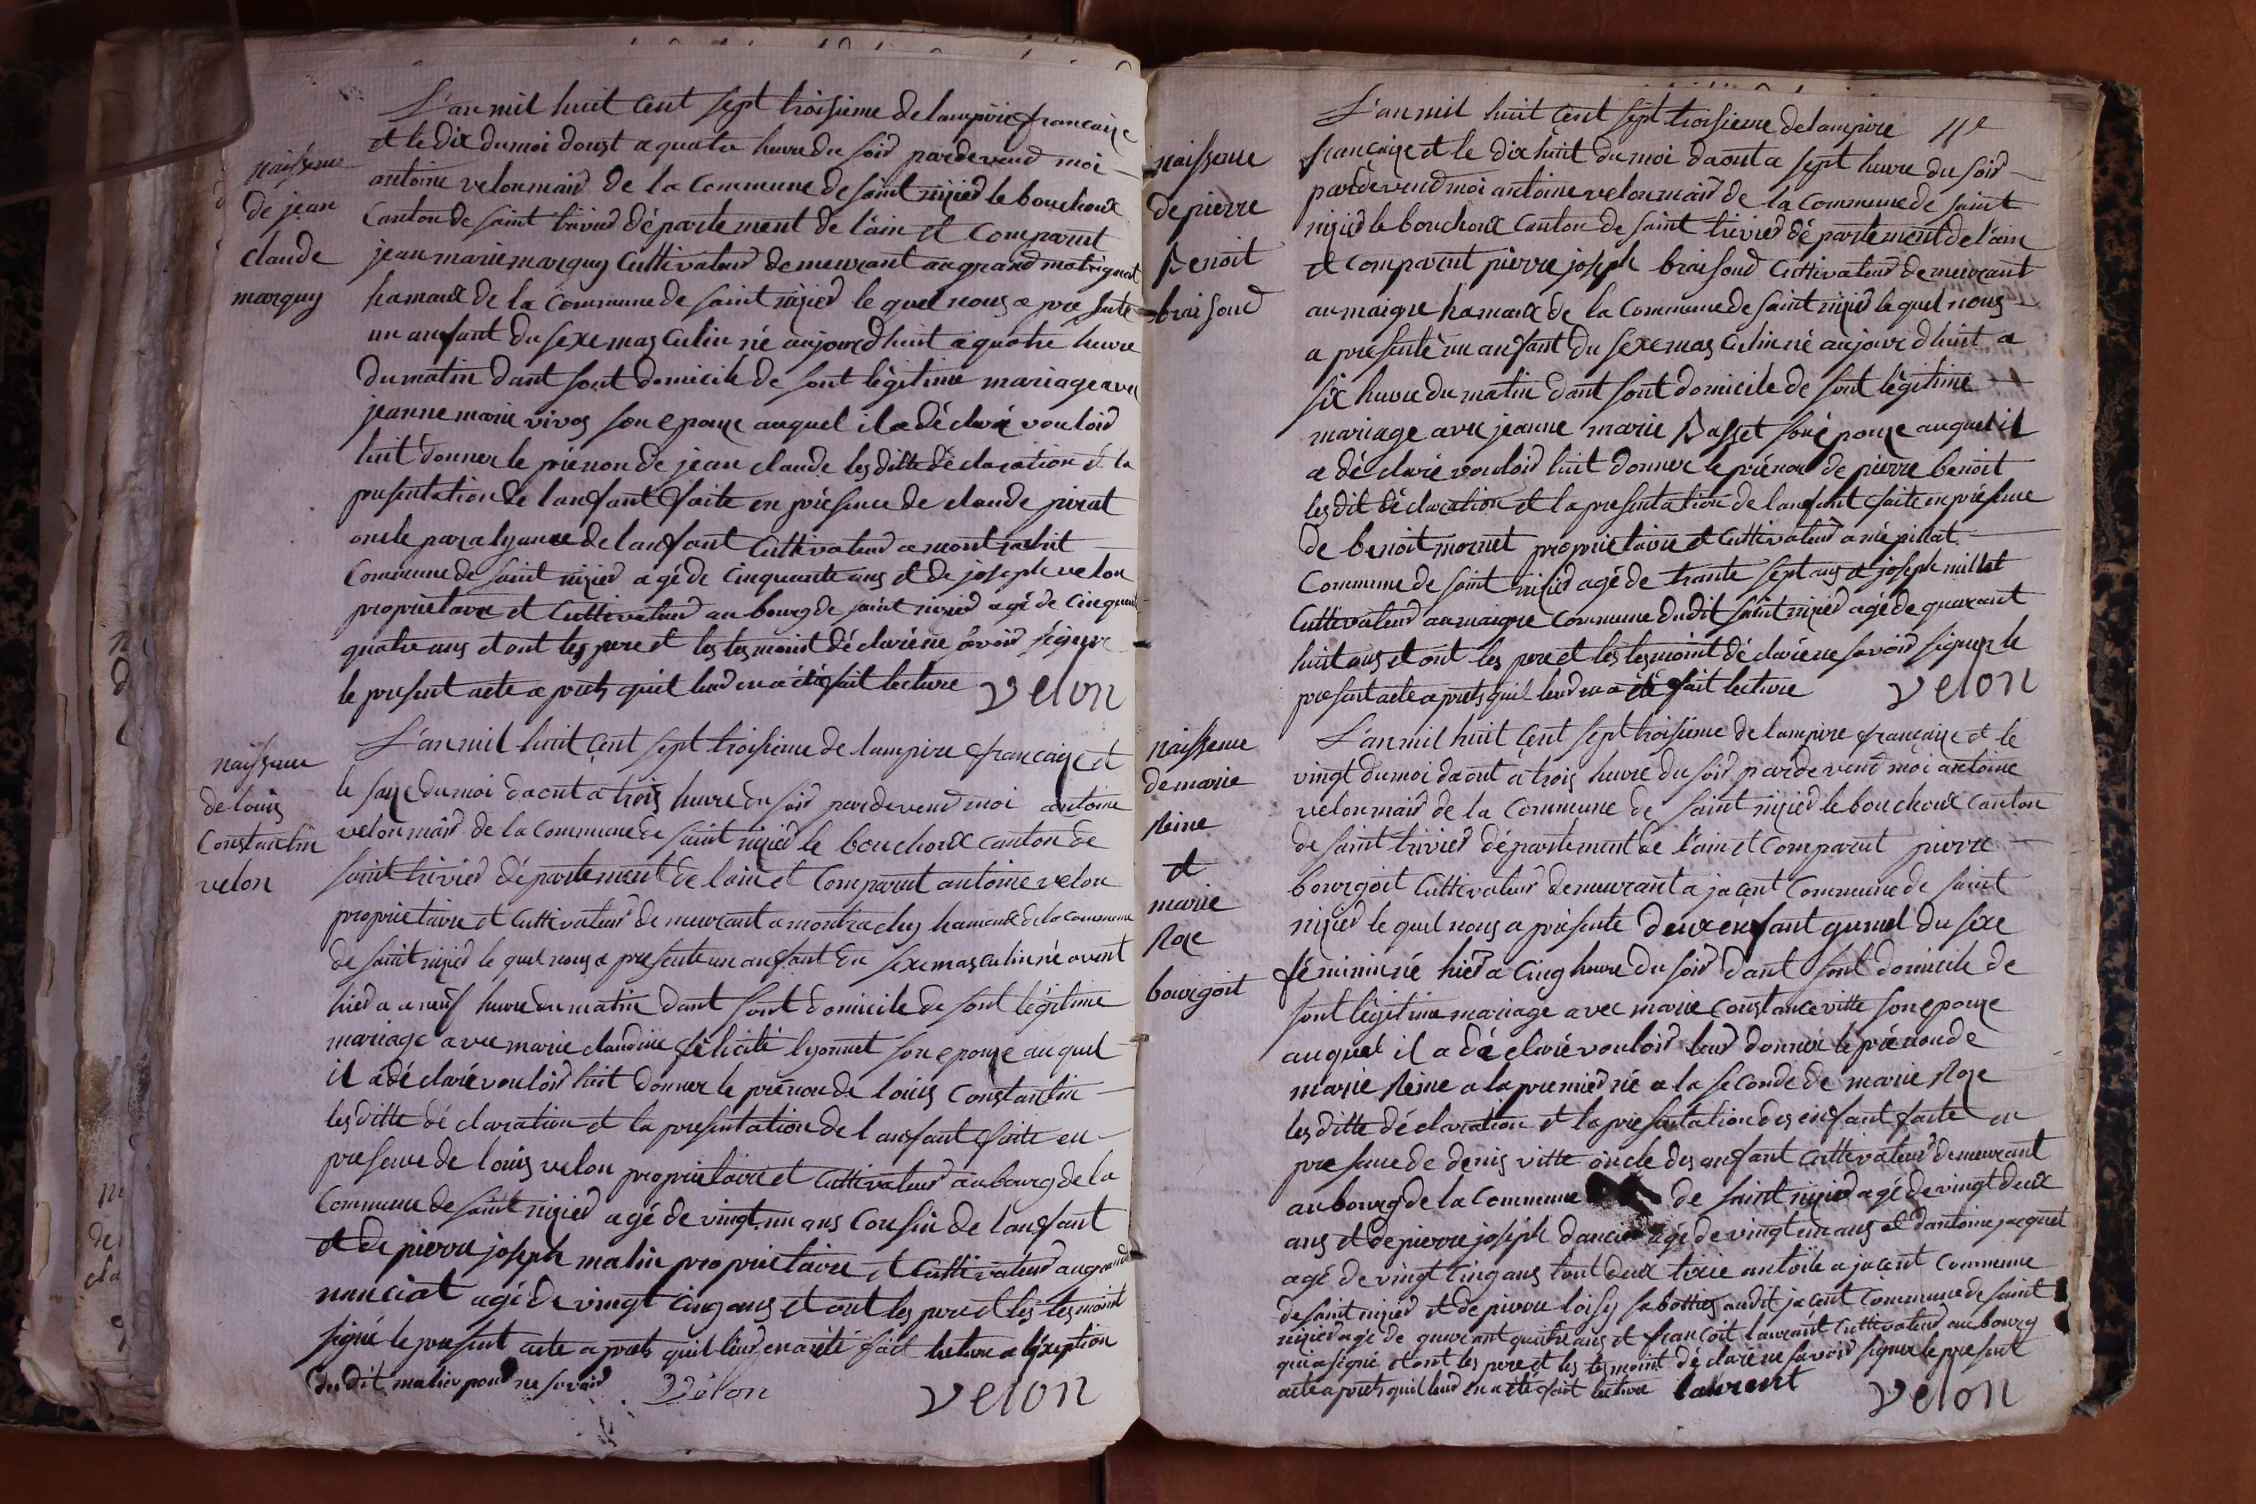 naissence
de jean
claude
marguy
L'an mil huit cent sept troisieme de lampire francaize
et le dix du moi doust a quatre heure du soir pardevend moi
antoine velon mair de la commune de saint nizier le bouchoux
canton de saint trivier département de l'ain et comparut
jean marie marguy cultivateur demeurant au grand
hamaux de la commune de saint nizier le quel nous a presente
un anfant du sexe masculin né aujourdhuit a quatre heure
du matin dant sont domicile de sont légitime mariage avec
jeanne marie vivos son epouze auquel il a déclaré vouloir
luit donner le prénon de jean claude les ditte déclaration et la
presentation de lanfant faite en présence de claude pirat
oncle par alyance de lanfant cultivateur a
commune de saint nizier agé de cinquante ans et de joseph velon
proprietaire et cultivateur au bourg de saint nizier agé de cinquante
quatre ans et ont les pere et les tesmoint déclaré ne savoir signer
le present acte a prets quil leur en a été fait lecture velon
naissence
de louis
constantin
velon
L'an mil huit cent sept troisieme de lampire francaize et
le saize du moi daout a trois heure du soir pardevend moi antoine
velon mair de la commune de saint nizier le bouchoux canton de
saint trivier département de lain et comparut antoine velon
proprietaire et cultivateur demeurant a montrachy hamaux de la commune
de saint nizier le quel nous a presente un anfant du sexe masculin né avent
hier a a neuf heure du matin dant sont domicile de sont légitime
mariage avec marie claudine félicité lyonnet son epouze auquel
il a déclaré vouloir luit donner le prénon de louis constantin
les ditte déclaration et la presentation de lanfant faite en
presence de louis velon proprietaire et cultivateur au bourg de la
commune de saint nizier agé de vingt un ans cousin de lanfant
et de pierre joseph malin proprietaire et cultivateur au grand
nanciat agé de vingt cinq ans et ont les pere et les tesmoint
signé le present acte a prets quil leur en a été fait lecture a léxeption
du dit malin pour ne savoir velon velon
11e
naissence
de pierre
Benoit
braisoud
L'an mil huit cent sept troisieme de lampire
francaize et le dix huit du moi daout a sept heure du soir
pardevend moi antoine velon mair de la commune de saint
nizier le bouchoux canton de saint trivier département de l'ain
et comparut pierre joseph braisoud cultivateur demeurant
au maigre hamaux de la commune de saint nizier le quel nous
a presente un anfant du sexe masculin né aujourdhuit a
six heure du matin dant sont domicile de sont légitime
mariage avec jeanne marie Basset son épouze auquel il
a déclaré vouloir luit donner le prénon de pierre benoit
les dit déclaration et la presentation de lanfant faite en présence
de benoit mornet proprietaire et cultivateur a mépillat
commune de saint nizier agé de trante sept ans et joseph millet
cultivateur au maigre commune dudit saint nizier agé de quarant
huit ans et ont les pere et les tesmoint déclaré ne savoir signer le
present acte a prets quil leur en a été fait lecture velon
naissence
de marie
Reine
et
marie
Roze
bourgoit
L'an mil huit cent sept troisieme de lampire françaize et le
vingt du moi daout a trois heure du soir pardevend moi antoine
velon mair de la commune de saint nizier le bouchoux canton
de saint trivier département de l'ain et comparut pierre
bourgoit cultivateur demeurant a jacent commune de saint
nizier le quel nous a présente deux enfant gumel du sexe
féminin né hier a cinq heure du soir dant sont domicile de
sont légitime mariage avec marie constance vitte son epouze
auquel il a déclaré vouloir leur donner le prénon de
marie Reine a la premier né a la seconde de marie Roze
les ditte déclaration et la presentation des enfant faite en
presence de denis vitte oncle des anfant cultivateur demeurant
au bourg de la commune de saint nizier agé de vingt deux
ans et de pierre joseph dancier agé de vingt un ans et dantoine jacquet
agé de vingt cinq ans tout deux a jacent commune
de saint nizier et de pierre loisy sabottier audit jacent commune de saint
nizier agé de quarant quatre ans et francoit laurant cultivateur au bourg
qui a signé et ont les pere et les tesmoint déclaré ne savoir signer le present
acte a prets quil leur en a été fait lecture laurent velon